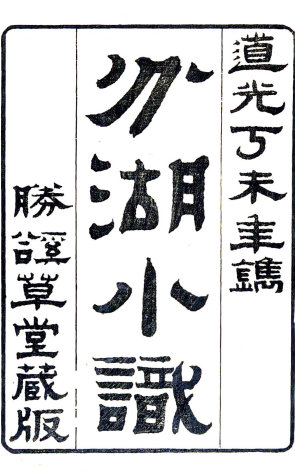 道光丁未年鐫
分湖小識
勝谿草堂藏版